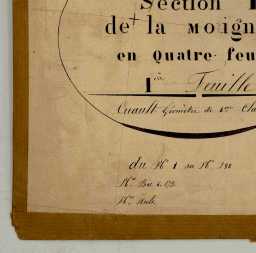 Section
de la Moign
en Quatre feu
1re Feuille
Cuault Géomètre de 1ere Cla
du No 1 au No 190